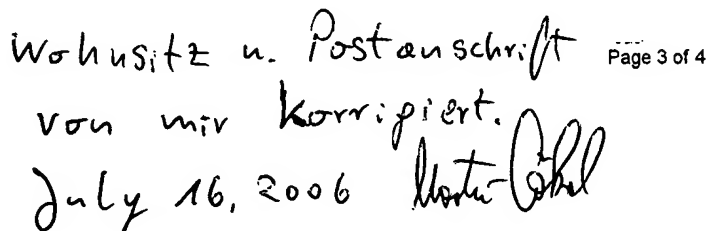 Wohnsitz u. Postanschrift
Page 3 of 4
von mir korrigiert.
July 16, 2006